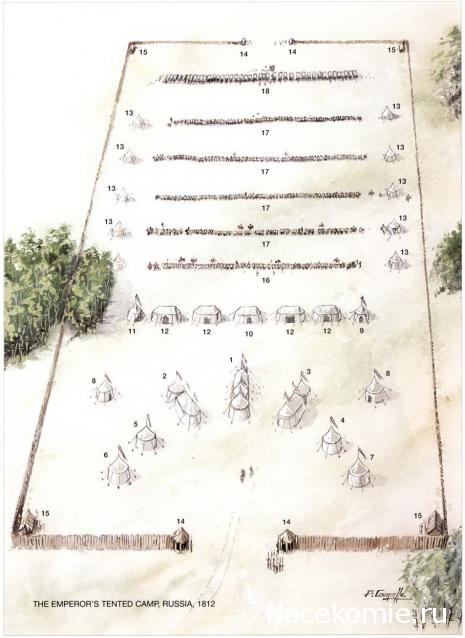 15 14 14 15
18
13 13
17
13 13
17
13 13
17
13 13
17
13 13
16
11 12 12 10 12 12 9
1
8 2 3 8
5 4
6 7
15 15
14 14
P. Courcelle
THE EMPEROR'S TENTED CAMP, RUSSIA, 1812
Nacekomie.ru